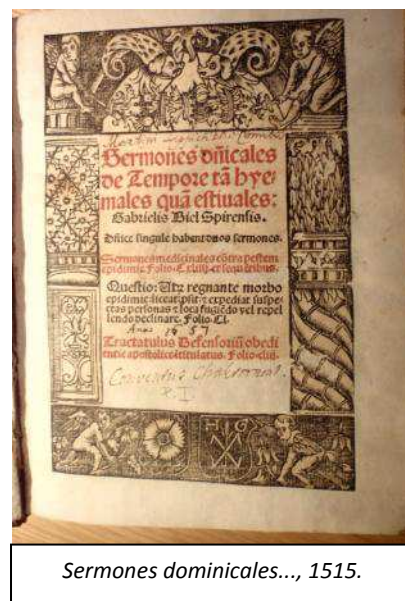 Sermones dñicales
de Tempore tā hye-
males quā estiuales:
Gabrielis Biel Spirensis.
Dñice singule habent duos sermones.
Sermones medicinales cōtra pestem
epidimie. Folio. et sequētibus.
Questio: Utȝ regnante morbo
epidimie liceat et expediat suspe-
ctas personas loca fugiēdo vel repel
lendo declinare. Folio. Cl.
Anno 1657
Tractatulus Defensoriū obedi
entie apostolice titulatus. Folio
Conventus
H G
Sermones dominicales..., 1515.